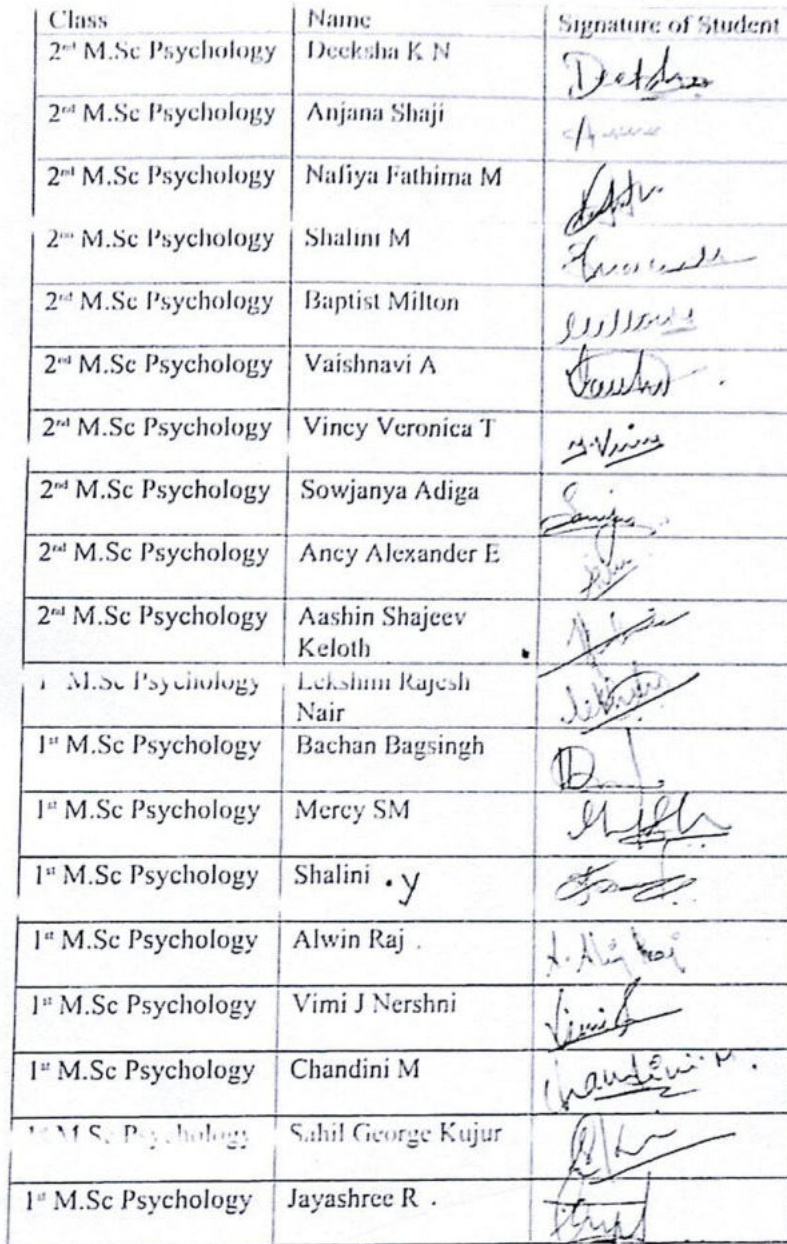 Class Name Signature of Student
2nd M.Sc Psychology Deeksha K N
2nd M.Sc Psychology Anjana Shaji
2nd M.Sc Psychology Nafiya Fathima M
2nd M.Sc Psychology Shalini M
2nd M.Sc Psychology Baptist Milton
2nd M.Sc Psychology Vaishnavi A
2nd M.Sc Psychology Vincy Veronica T
2nd M.Sc Psychology Sowjanya Adiga
2nd M.Sc Psychology Ancy Alexander E
2nd M.Sc Psychology Aashin Shajeev
Keloth
1st M.Sc Psychology Lekshmi Rajesh
Nair
1st M.Sc Psychology Bachan Bagsingh
1st M.Sc Psychology Mercy SM
1st M.Sc Psychology Shalini .y
1st M.Sc Psychology Alwin Raj
1st M.Sc Psychology Vimi J Nershni Vimi
1st M.Sc Psychology Chandini M Chandini M.
1st M.Sc Psychology Sahil George Kujur
1st M.Sc Psychology Jayashree R .